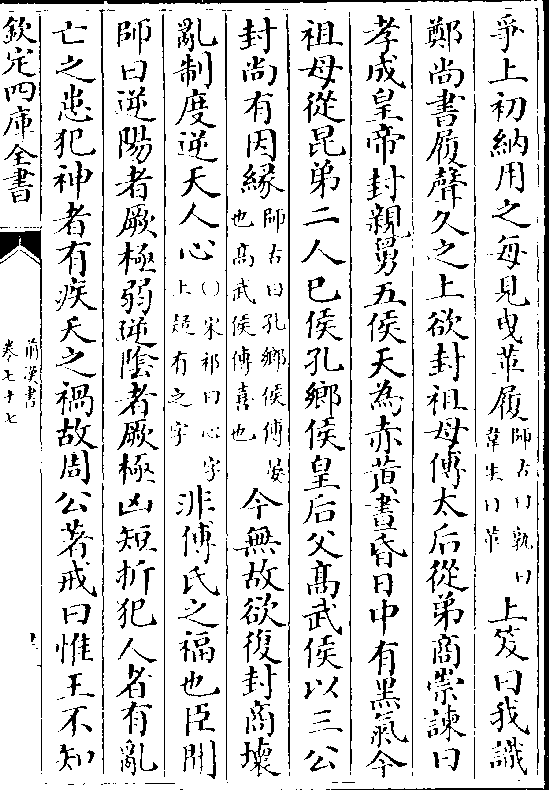 爭上初納用之每見曳革履師古曰孰曰韋生曰革上笑曰我識
鄭尚書履聲久之上欲封祖母傅太后從弟商崇諫曰
孝成皇帝封親舅五侯天為赤黃晝昏日中有黑氣今
祖母從昆弟二人已侯孔鄉侯皇后父高武侯以三公
封尚有因緣師古曰孔鄉侯傅晏也高武侯傅喜也今無故欲復封商壞
亂制度逆天人心○宋祁曰心字上疑有之字非傅氏之福也臣聞
師曰逆陽者厥極弱逆陰者厥極凶短折犯人者有亂
亡之患犯神者有疾夭之禍故周公著戒曰惟王不知
欽定四庫全書
前漢書
卷七十七